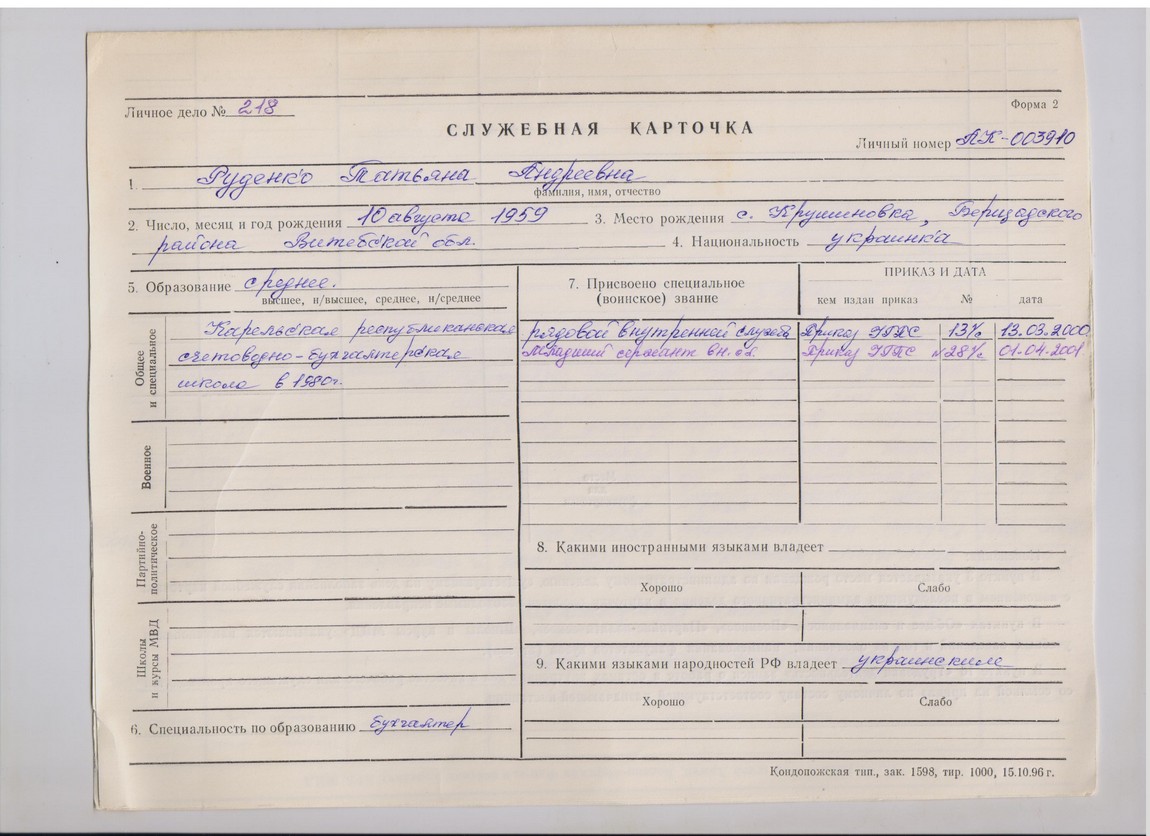 Личное дело № 218
Форма 2
СЛУЖЕБНАЯ КАРТОЧКА
Личный номер ПК-003910
1. Руденко Татьяна Андреевна
фамилия, имя, отчество
2. Число, месяц и год рождения 10 августа 1959 3. Место рождения с. Крушиновка, Бершадского
района Витебской обл. 4. Национальность украинка
5. Образование среднее.
высшее, н/высшее, среднее, н/среднее
Общее и специальное
Карельская республиканская
счетоводно-бухгалтерская
школа в 1980г.
Военное
Партийно-политическое
Школы и курсы МВД
6. Специальность по образованию бухгалтер
7. Присвоено специальное
(воинское) звание
ПРИКАЗ И ДАТА
кем издан приказ № дата
рядовой внутренней службы Приказ УГПС 13% 13.03.2000
младший сержант вн. сл. Приказ УГПС №28% 01.04.2001
8. Какими иностранными языками владеет
Хорошо Слабо
9. Какими языками народностей РФ владеет украинским
Хорошо Слабо
Кондопожская тип., зак. 1598, тир. 1000, 15.10.96 г.